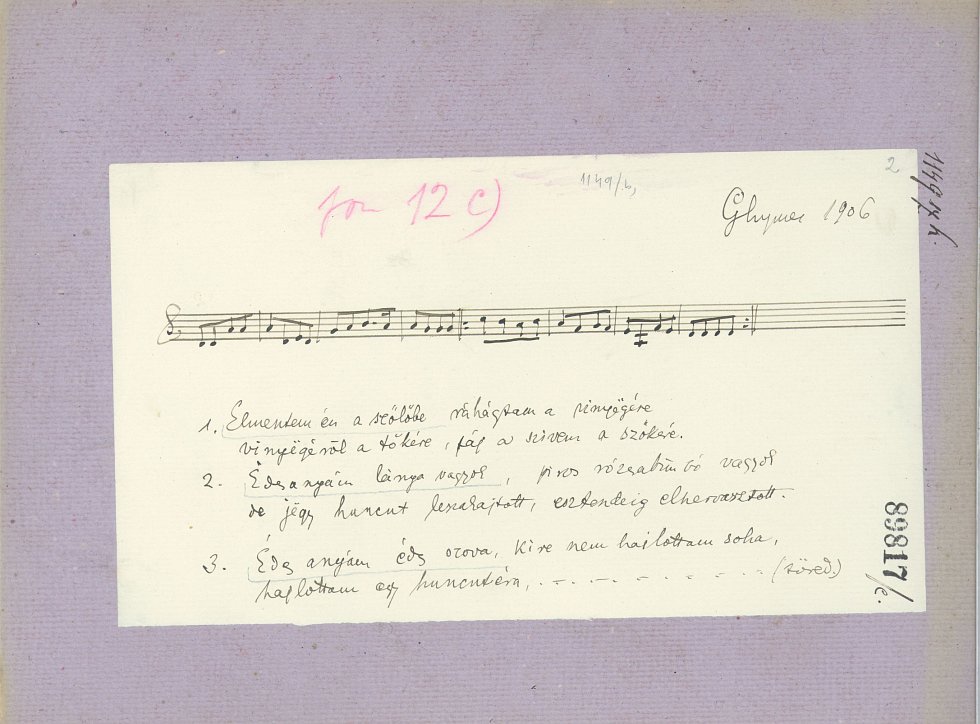 2
1149/b,
12 c)
Ghymes 1906
1. Elmentem én a szőlőbe ráhágtam a vinyëgére
vinyëgéről a tőkére, fáj a szivem a szőkére.
2. Édesanyám lánya vagyok, piros rózsabimbó vagyok
de jëgy huncut leszakajtott, esztendeig elhervasztott.
3. Édes anyám édes szova, kire nem hajlottam soha,
hajlottam egy huncutéra, (töred.)
89817/c.